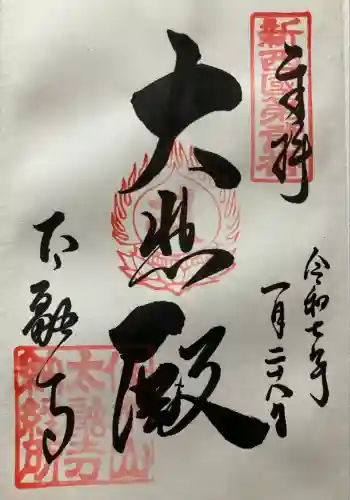 奉拝
令和七年
一月二十八日
大悲殿
太融寺
新西國第一番
佳木山
太融寺
納経印